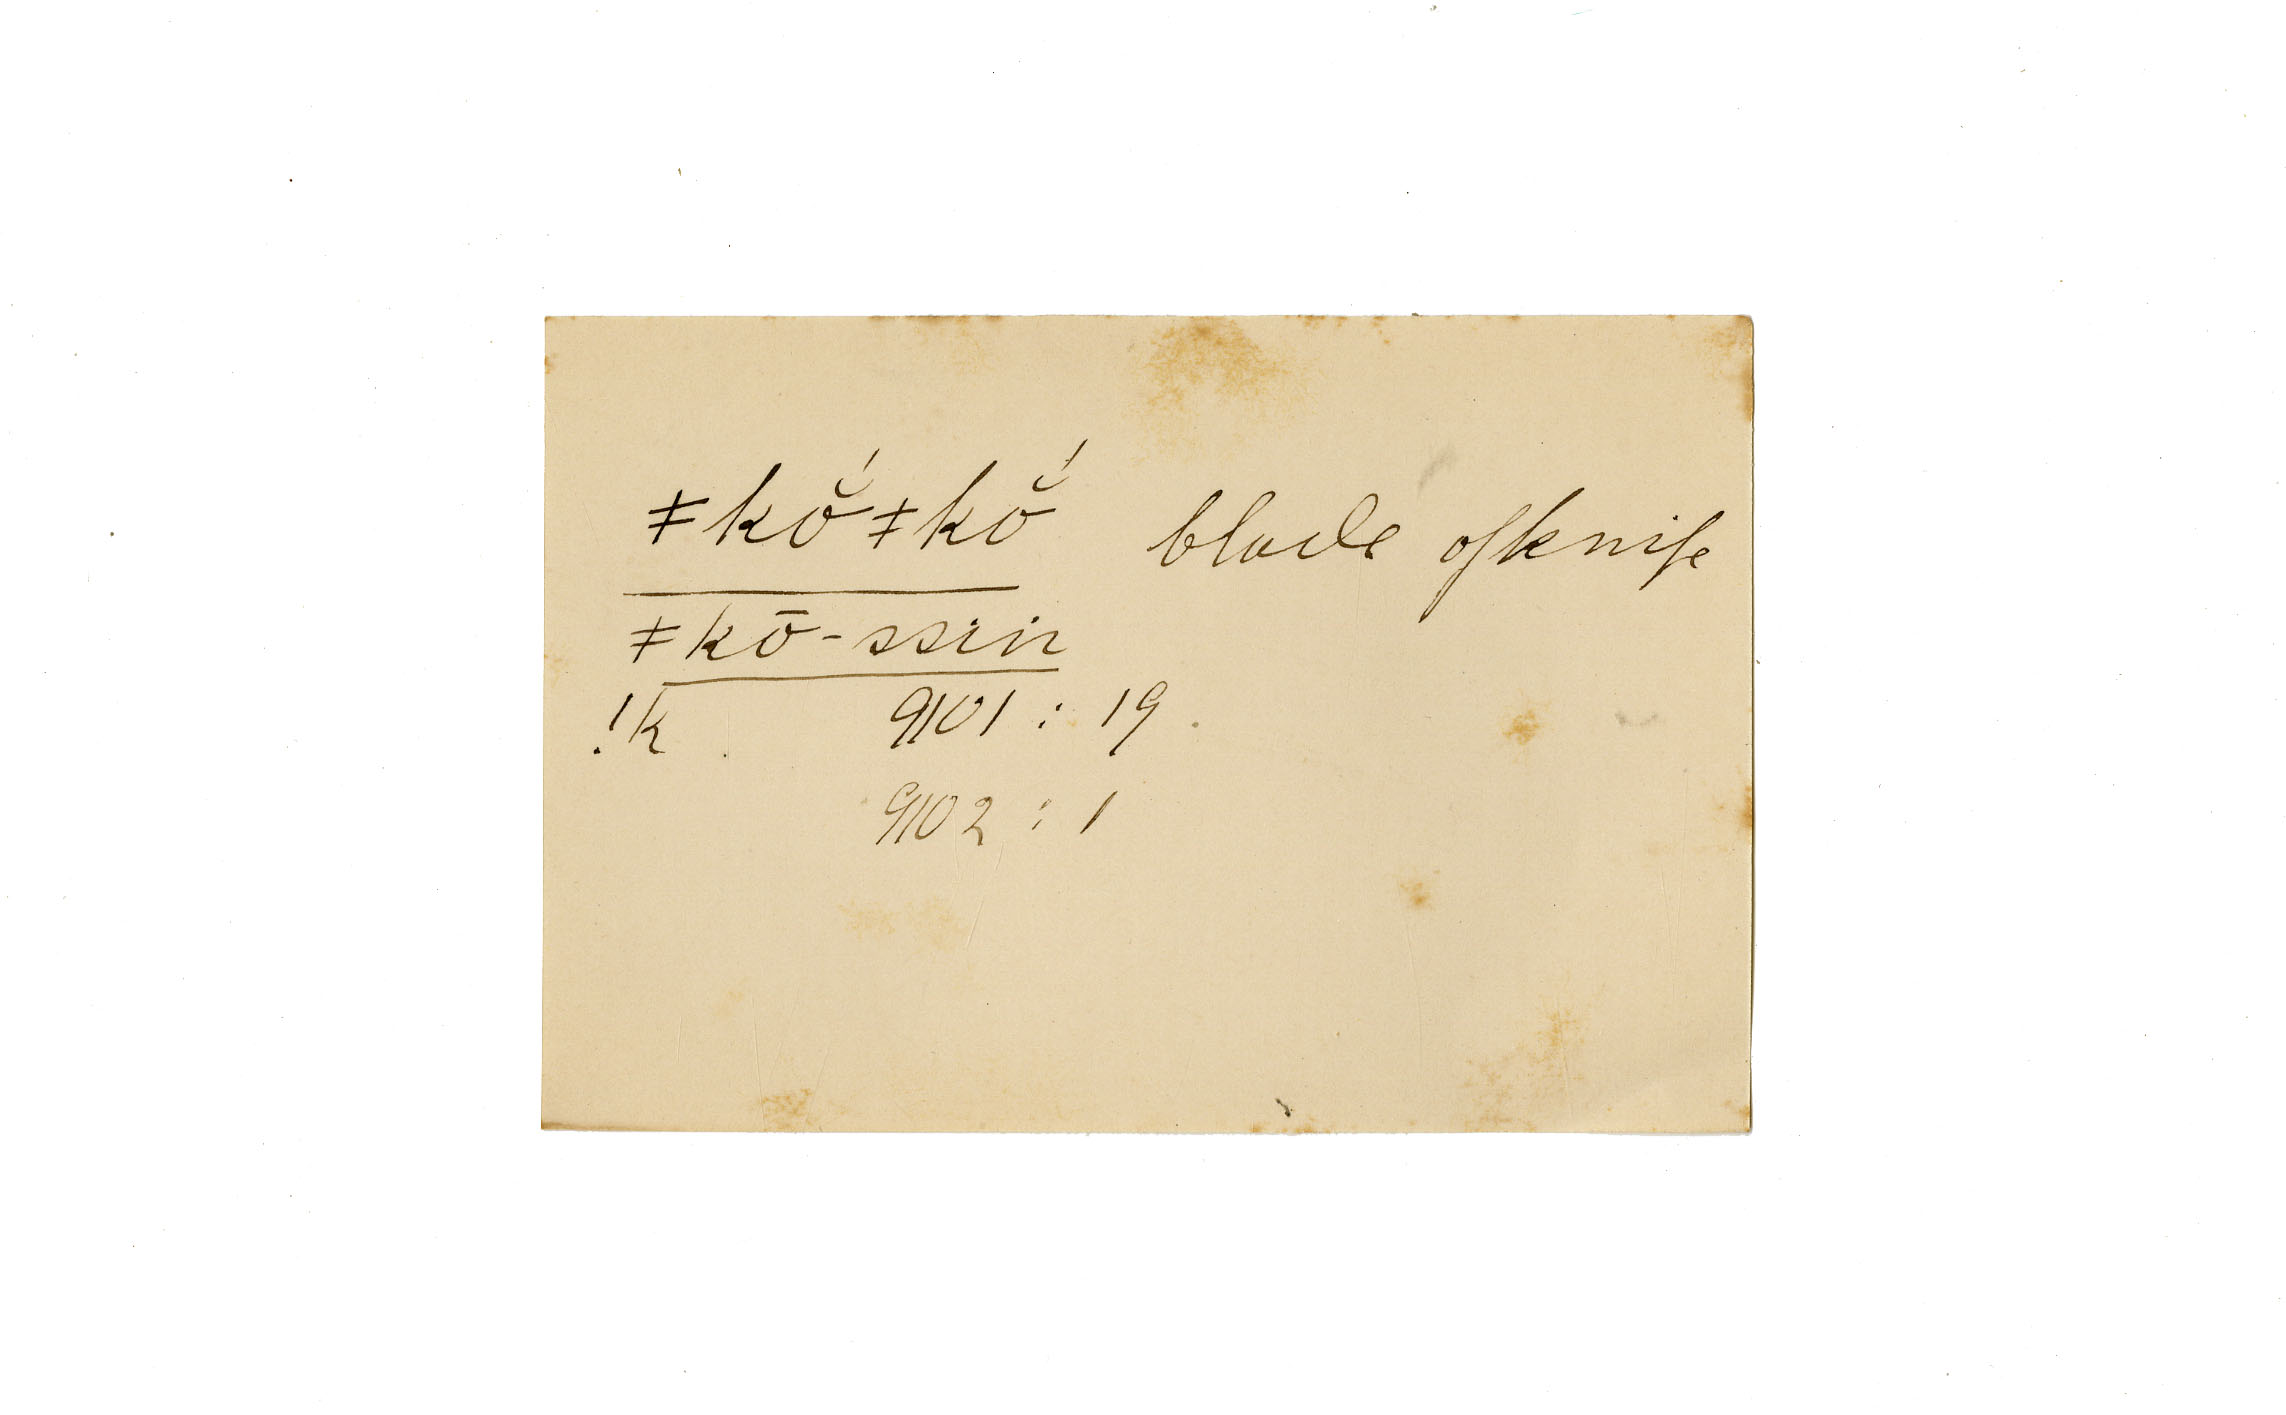 ǂkŏ́ǂkŏ́ blade of knife
ǂkō-ssin
!k 9101 : 19.
9102 : 1